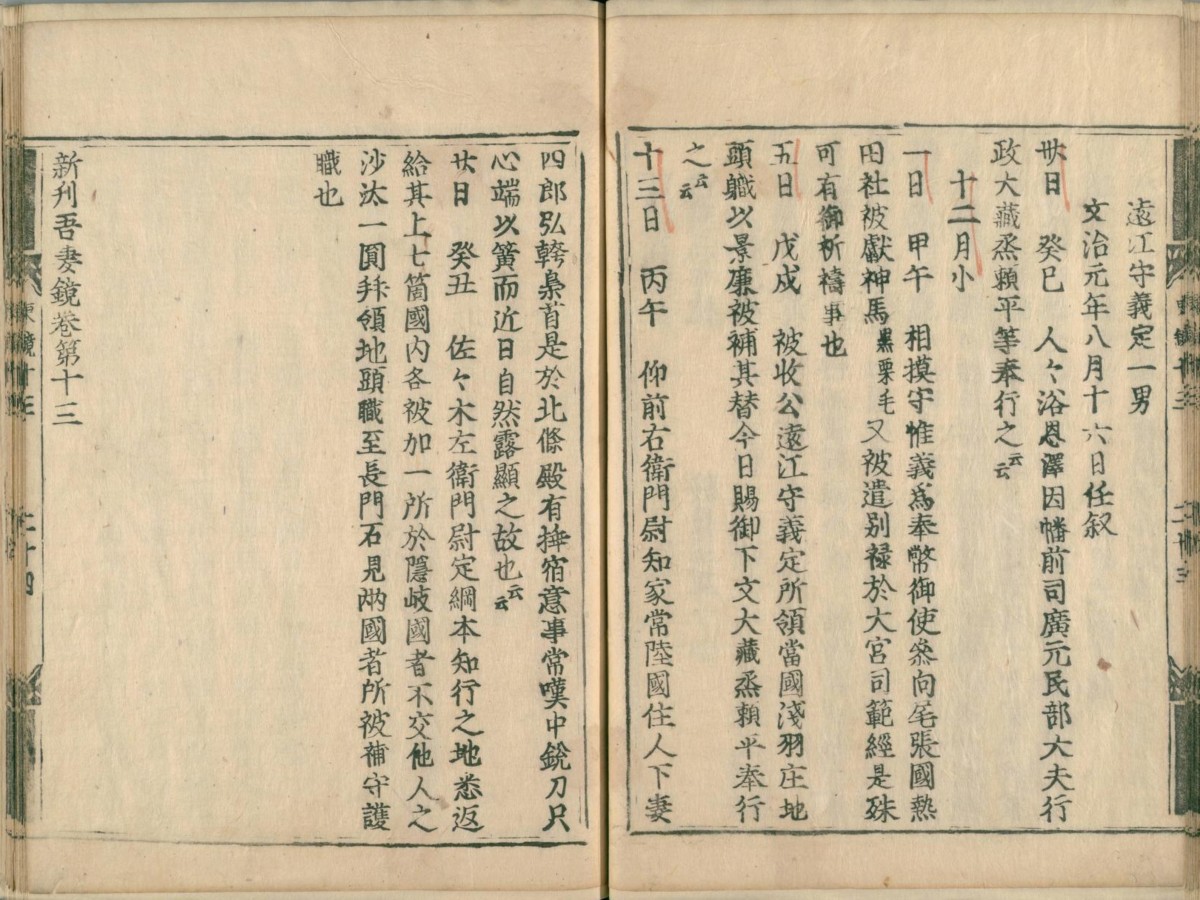 遠江守義定一男
文治元年八月十六日任叙
廿日　癸巳　人々浴恩澤因幡前司廣元民部大夫行
政大藏烝頼平等奉行之云云
十二月小
一日　甲午　相摸守惟義爲奉幣御使叅向尾張國熱
田社被獻神馬黒栗毛又被遣别禄於大宮司範經是殊
可有御祈禱事也
五日　戊戌　被收公遠江守義定所領當國淺羽庄地
頭職以景廉被補其替今日賜御下文大藏烝頼平奉行
之云云
十三日　丙午　仰前右衛門尉知家常陸國住人下妻
四郎弘幹梟首是於北條殿有挿宿意事常嘆中鋭刀只
心端以簧而近日自然露顯之故也云云
廿日　癸丑　佐々木左衛門尉定綱本知行之地悉返
給其上七箇國内各被加一所於隱岐國者不交他人之
沙汰一圓拜領地頭職至長門石見兩國者所被補守護
職也
新刊吾妻鏡卷第十三
東鏡十三
二十四